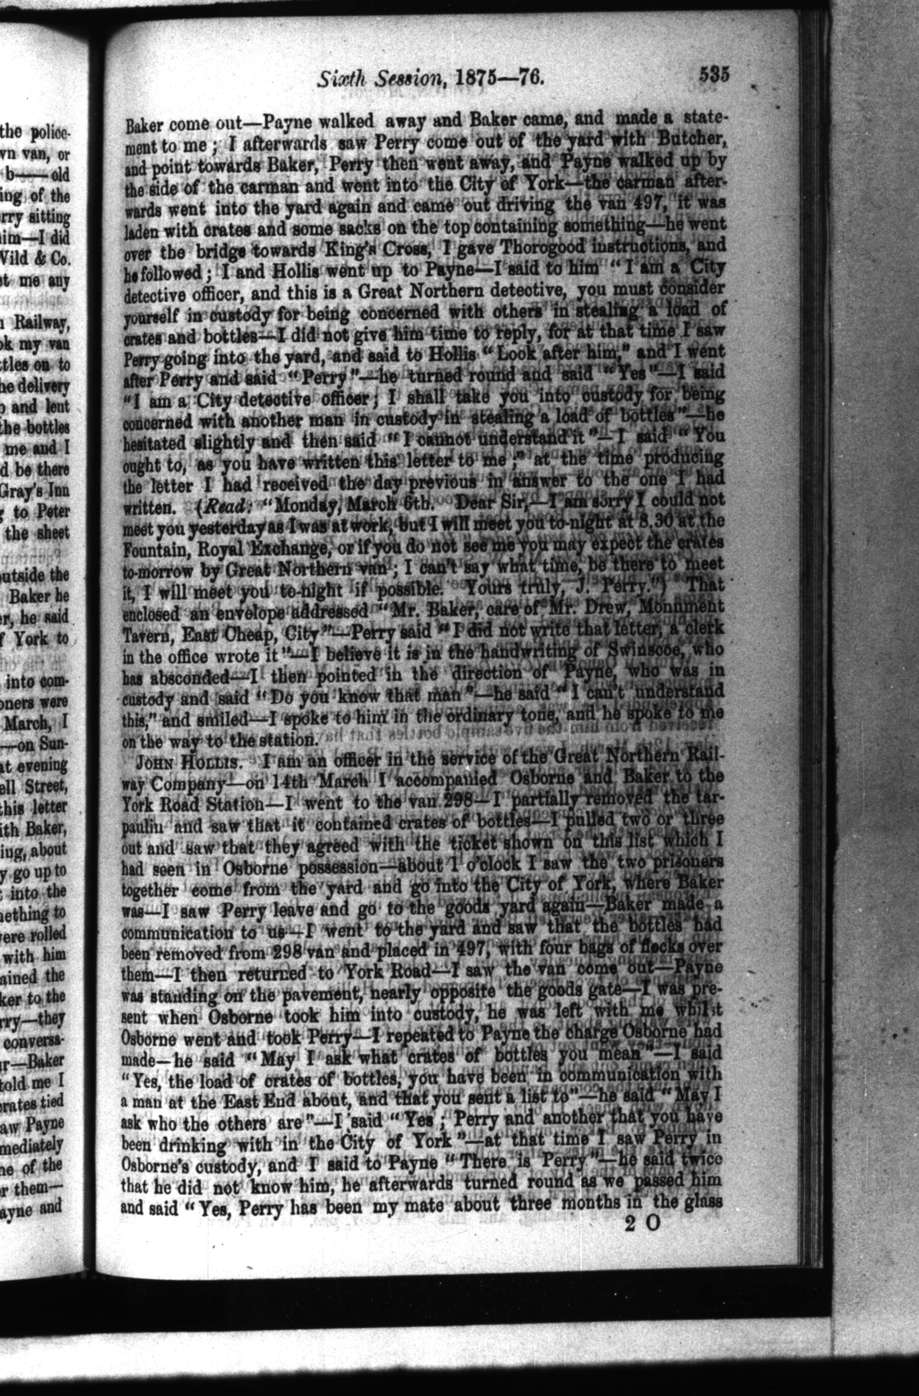 the police-
wn van, or
b——old
ing of the
rry sitting
im—I did
Wild & Co.
t me any
Railway,
ok my van
ttles on to
he delivery
and lent
the bottles
me and I
d be there
Gray's Inn
to Peter
the sheet
outside the
Baker he
er, he said
f York to
into com-
oners were
March, I
—on Sun-
at evening
ell Street,
this letter
ith Baker,
ing, about
y go up to
into the
mething to
were rolled
with him
ained the
ker to the
rry—they
conversa-
r—Baker
told me I
crates tied
aw Payne
mediately
ne of the
r them—
ayne and
Sixth Session, 1875—76. 535
Baker come out—Payne walked away and Baker came, and made a state-
ment to me; I afterwards saw Perry come out of the yard with Butcher,
and point towards Baker, Perry then went away, and Payne walked up by
the side of the carman and went into the City of York—the carman after-
wards went into the yard again and came out driving the van 497, it was
laden with crates and some sacks on the top containing something—he went
over the bridge towards King's Cross, I gave Thorogood instructions, and
he followed; I and Hollis went up to Payne—I said to him "I am a City
detective officer, and this is a Great Northern detective, you must consider
yourself in custody for being concerned with others in stealing a load of
crates and bottles—I did not give him time to reply, for at that time I saw
Perry going into the yard, and said to Hollis "Look after him," and I went
after Perry and said "Perry"—he turned round and said "Yes"—I said
"I am a City detective officer; I shall take you into custody for being
concerned with another man in custody in stealing a load of bottles"—he
hesitated slightly and then said "I cannot understand it"—I said "You
ought to, as you have written this letter to me;" at the time producing
the letter I had received the day previous in answer to the one I had
written. (Read: "Monday, March 6th. Dear Sir,—I am sorry I could not
meet you yesterday as I was at work, but I will meet you to-night at 8.30 at the
Fountain, Royal Exchange, or if you do not see me you may expect the crates
to-morrow by Great Northern van; I can't say what time, be there to meet
it, I will meet you to-night if possible. Yours truly, J. Perry.") That
enclosed an envelope addressed "Mr. Baker, care of Mr. Drew, Monument
Tavern, East Cheap, City"—Perry said "I did not write that letter, a clerk
in the office wrote it"—I believe it is in the handwriting of Swinscoe, who
has absconded—I then pointed in the direction of Payne, who was in
custody and said "Do you know that man"—he said "I can't understand
this," and smiled—I spoke to him in the ordinary tone, and he spoke to me
on the way to the station.
JOHN HOLLIS. I am an officer in the service of the Great Northern Rail-
way Company—on 14th March I accompanied Osborne and Baker to the
York Road Station—I went to the van 298—I partially removed the tar-
paulin and saw that it contained crates of bottles—I pulled two or three
out and saw that they agreed with the ticket shown on this list which I
had seen in Osborne possession—about 1 o'clock I saw the two prisoners
together come from the yard and go into the City of York, where Baker
was—I saw Perry leave and go to the goods yard again—Baker made a
communication to us—I went to the yard and saw that the bottles had
been removed from 298 van and placed in 497, with four bags of flocks over
them—I then returned to York Road—I saw the van come out—Payne
was standing on the pavement, nearly opposite the goods gate—I was pre-
sent when Osborne took him into custody, he was left with me whilst
Osborne went and took Perry—I repeated to Payne the charge Osborne had
made—he said "May I ask what crates of bottles you mean"—I said
"Yes, the load of crates of bottles, you have been in communication with
a man at the East End about, and that you sent a list to"—he said "May I
ask who the others are"—I said "Yes; Perry and another that you have
been drinking with in the City of York"—at that time I saw Perry in
Osborne's custody, and I said to Payne "There is Perry"—he said twice
that he did not know him, he afterwards turned round as we passed him
and said "Yes, Perry has been my mate about three months in the glass
2 O